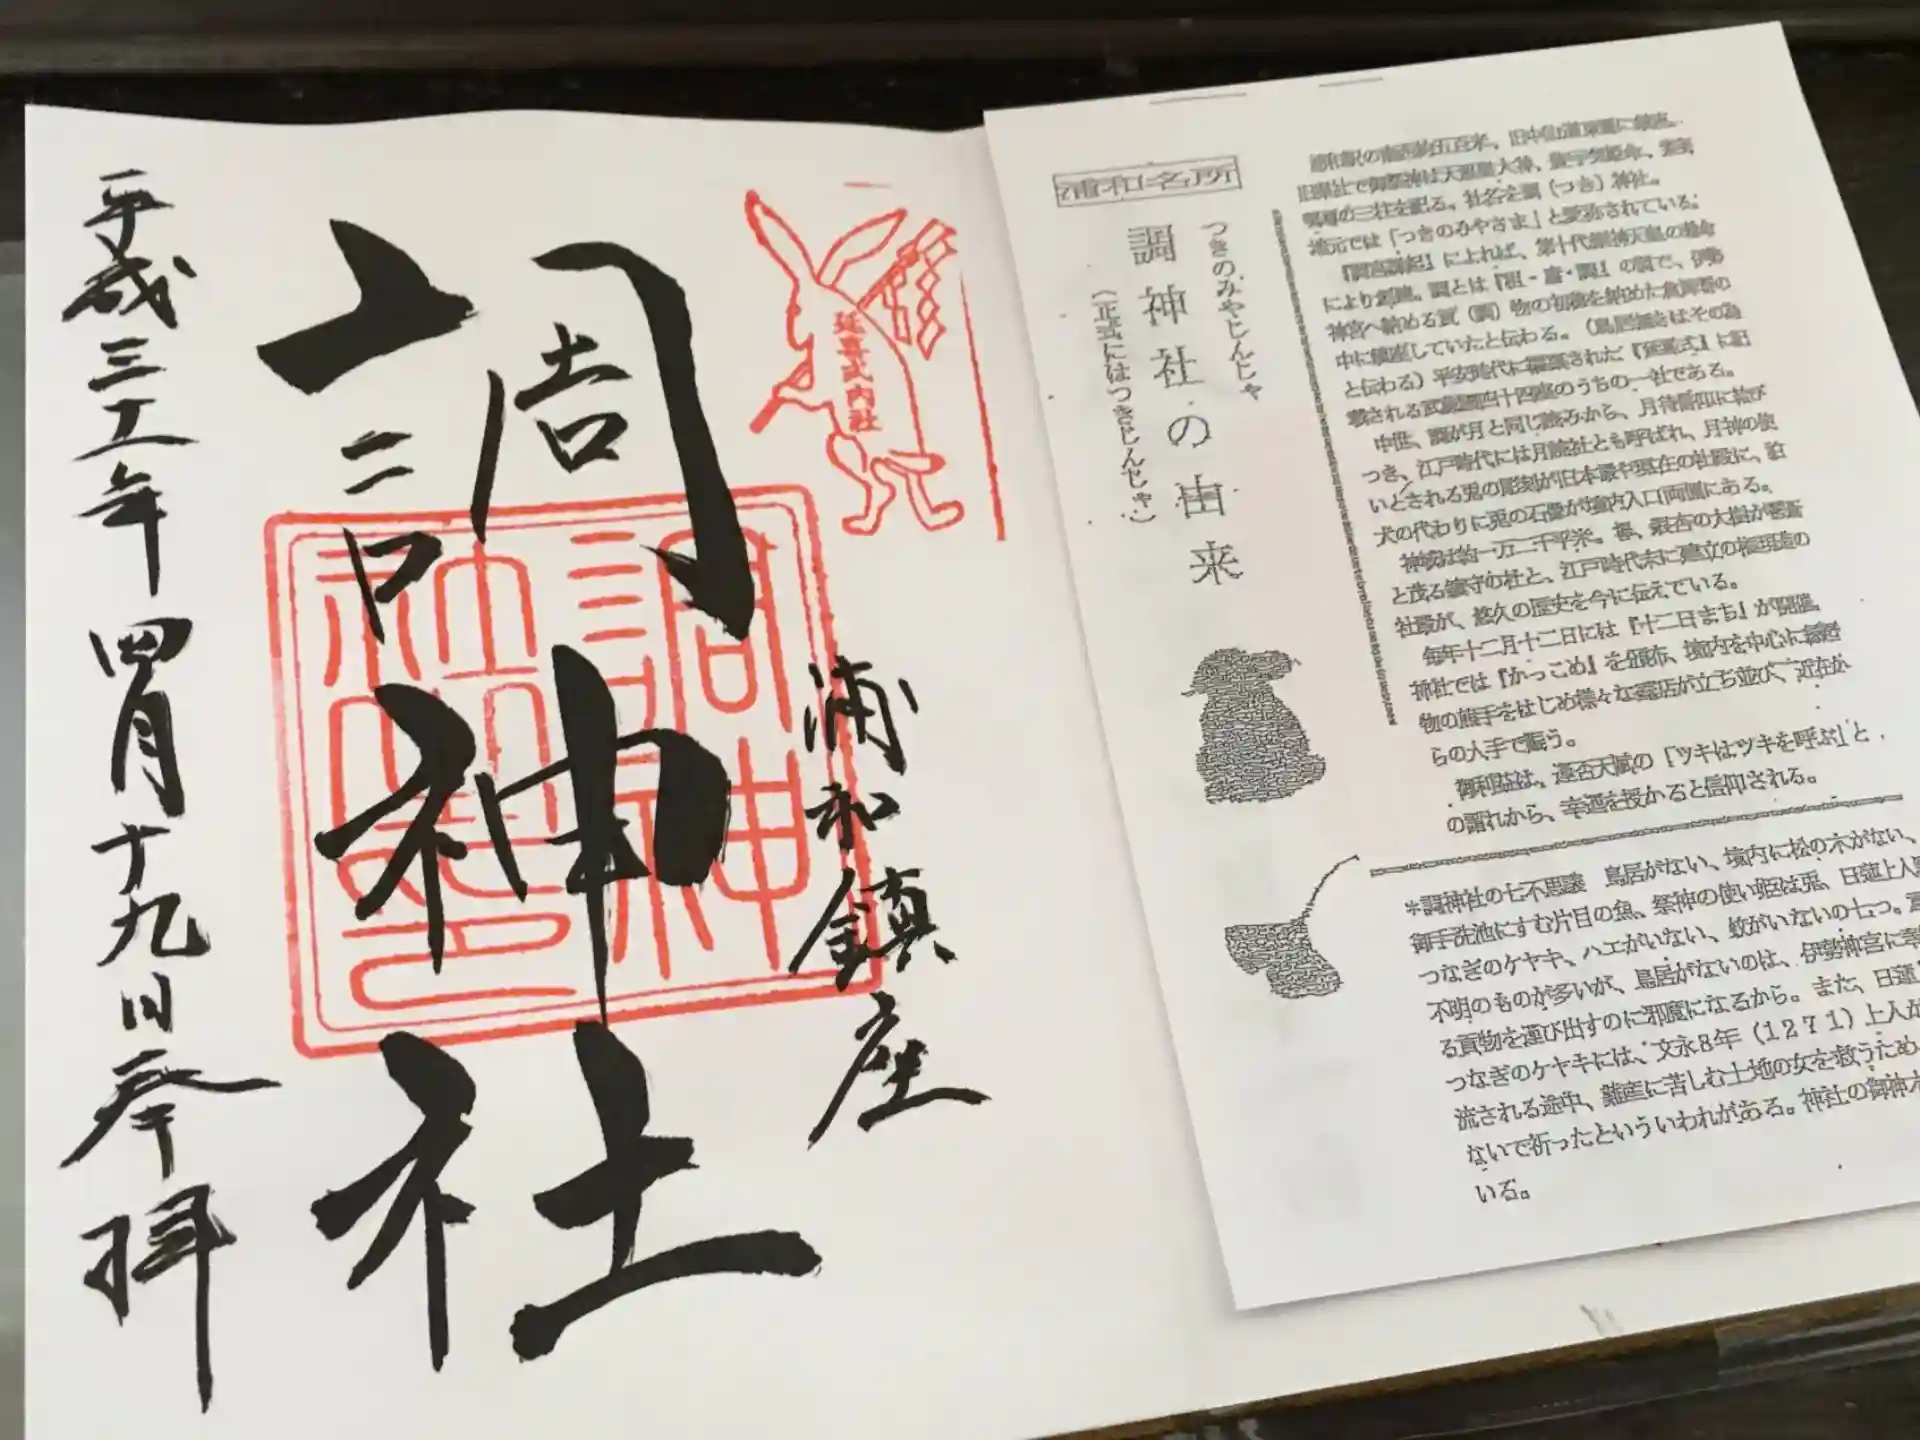 延喜式内社
浦和鎮座
調神社
平成三十一年四月十九日参拝
調神社
浦和名所
つきのみやじんじゃ
調神社の由来
(正式にはつきじんじゃ)
浦和駅の南西約五百米、旧中山道東側に鎮座。
旧県社で御祭神は天照皇大神、豊宇気姫命、素戔
嗚尊の三柱を祀る。社名を調(つき)神社。
地元では「つきのみやさま」と愛称されている。
により創建。調とは『租・庸・調』の調で、伊勢
神宮へ納める貢(調)物の初穂を納めた倉庫群の
中に鎮座していたと伝わる。(鳥居無きはその為
と伝わる)平安時代に編纂された『延喜式』に記
載される武蔵国四十四座のうちの一社である。
中世、調が月と同じ読みから、月待信仰に結び
つき、江戸時代には月読社とも呼ばれ、月神の使
いとされる兎の彫刻が旧本殿や現在の社殿に、狛
犬の代わりに兎の石像が境内入口両側にある。
神域は約一万二千平米。欅、銀杏の大樹が鬱蒼
と茂る鎮守の杜と、江戸時代末に建立の権現造の
社殿が、悠久の歴史を今に伝えている。
毎年十二月十二日には『十二日まち』が開催、
神社では『かっこめ』を頒布、境内を中心に縁起
物の熊手をはじめ様々な露店が立ち並び、近在か
らの人手で賑う。
御利益は、運否天賦の「ツキはツキを呼ぶ」と
の謂れから、幸運を授かると信仰される。
*調神社の七不思議 鳥居がない、境内に松の木がない、
御手洗池にすむ片目の魚、祭神の使い姫は兎、日蓮上人
つなぎのケヤキ、ハエがいない、蚊がいないの七つ。
不明のものが多いが、鳥居がないのは、伊勢神宮に
る貢物を運び出すのに邪魔になるから。また、日蓮
つなぎのケヤキには、文永8年(1271)上人が
流される途中、難産に苦しむ土地の女を救うため
ないで祈ったといういわれがある。神社の御神木
いる。